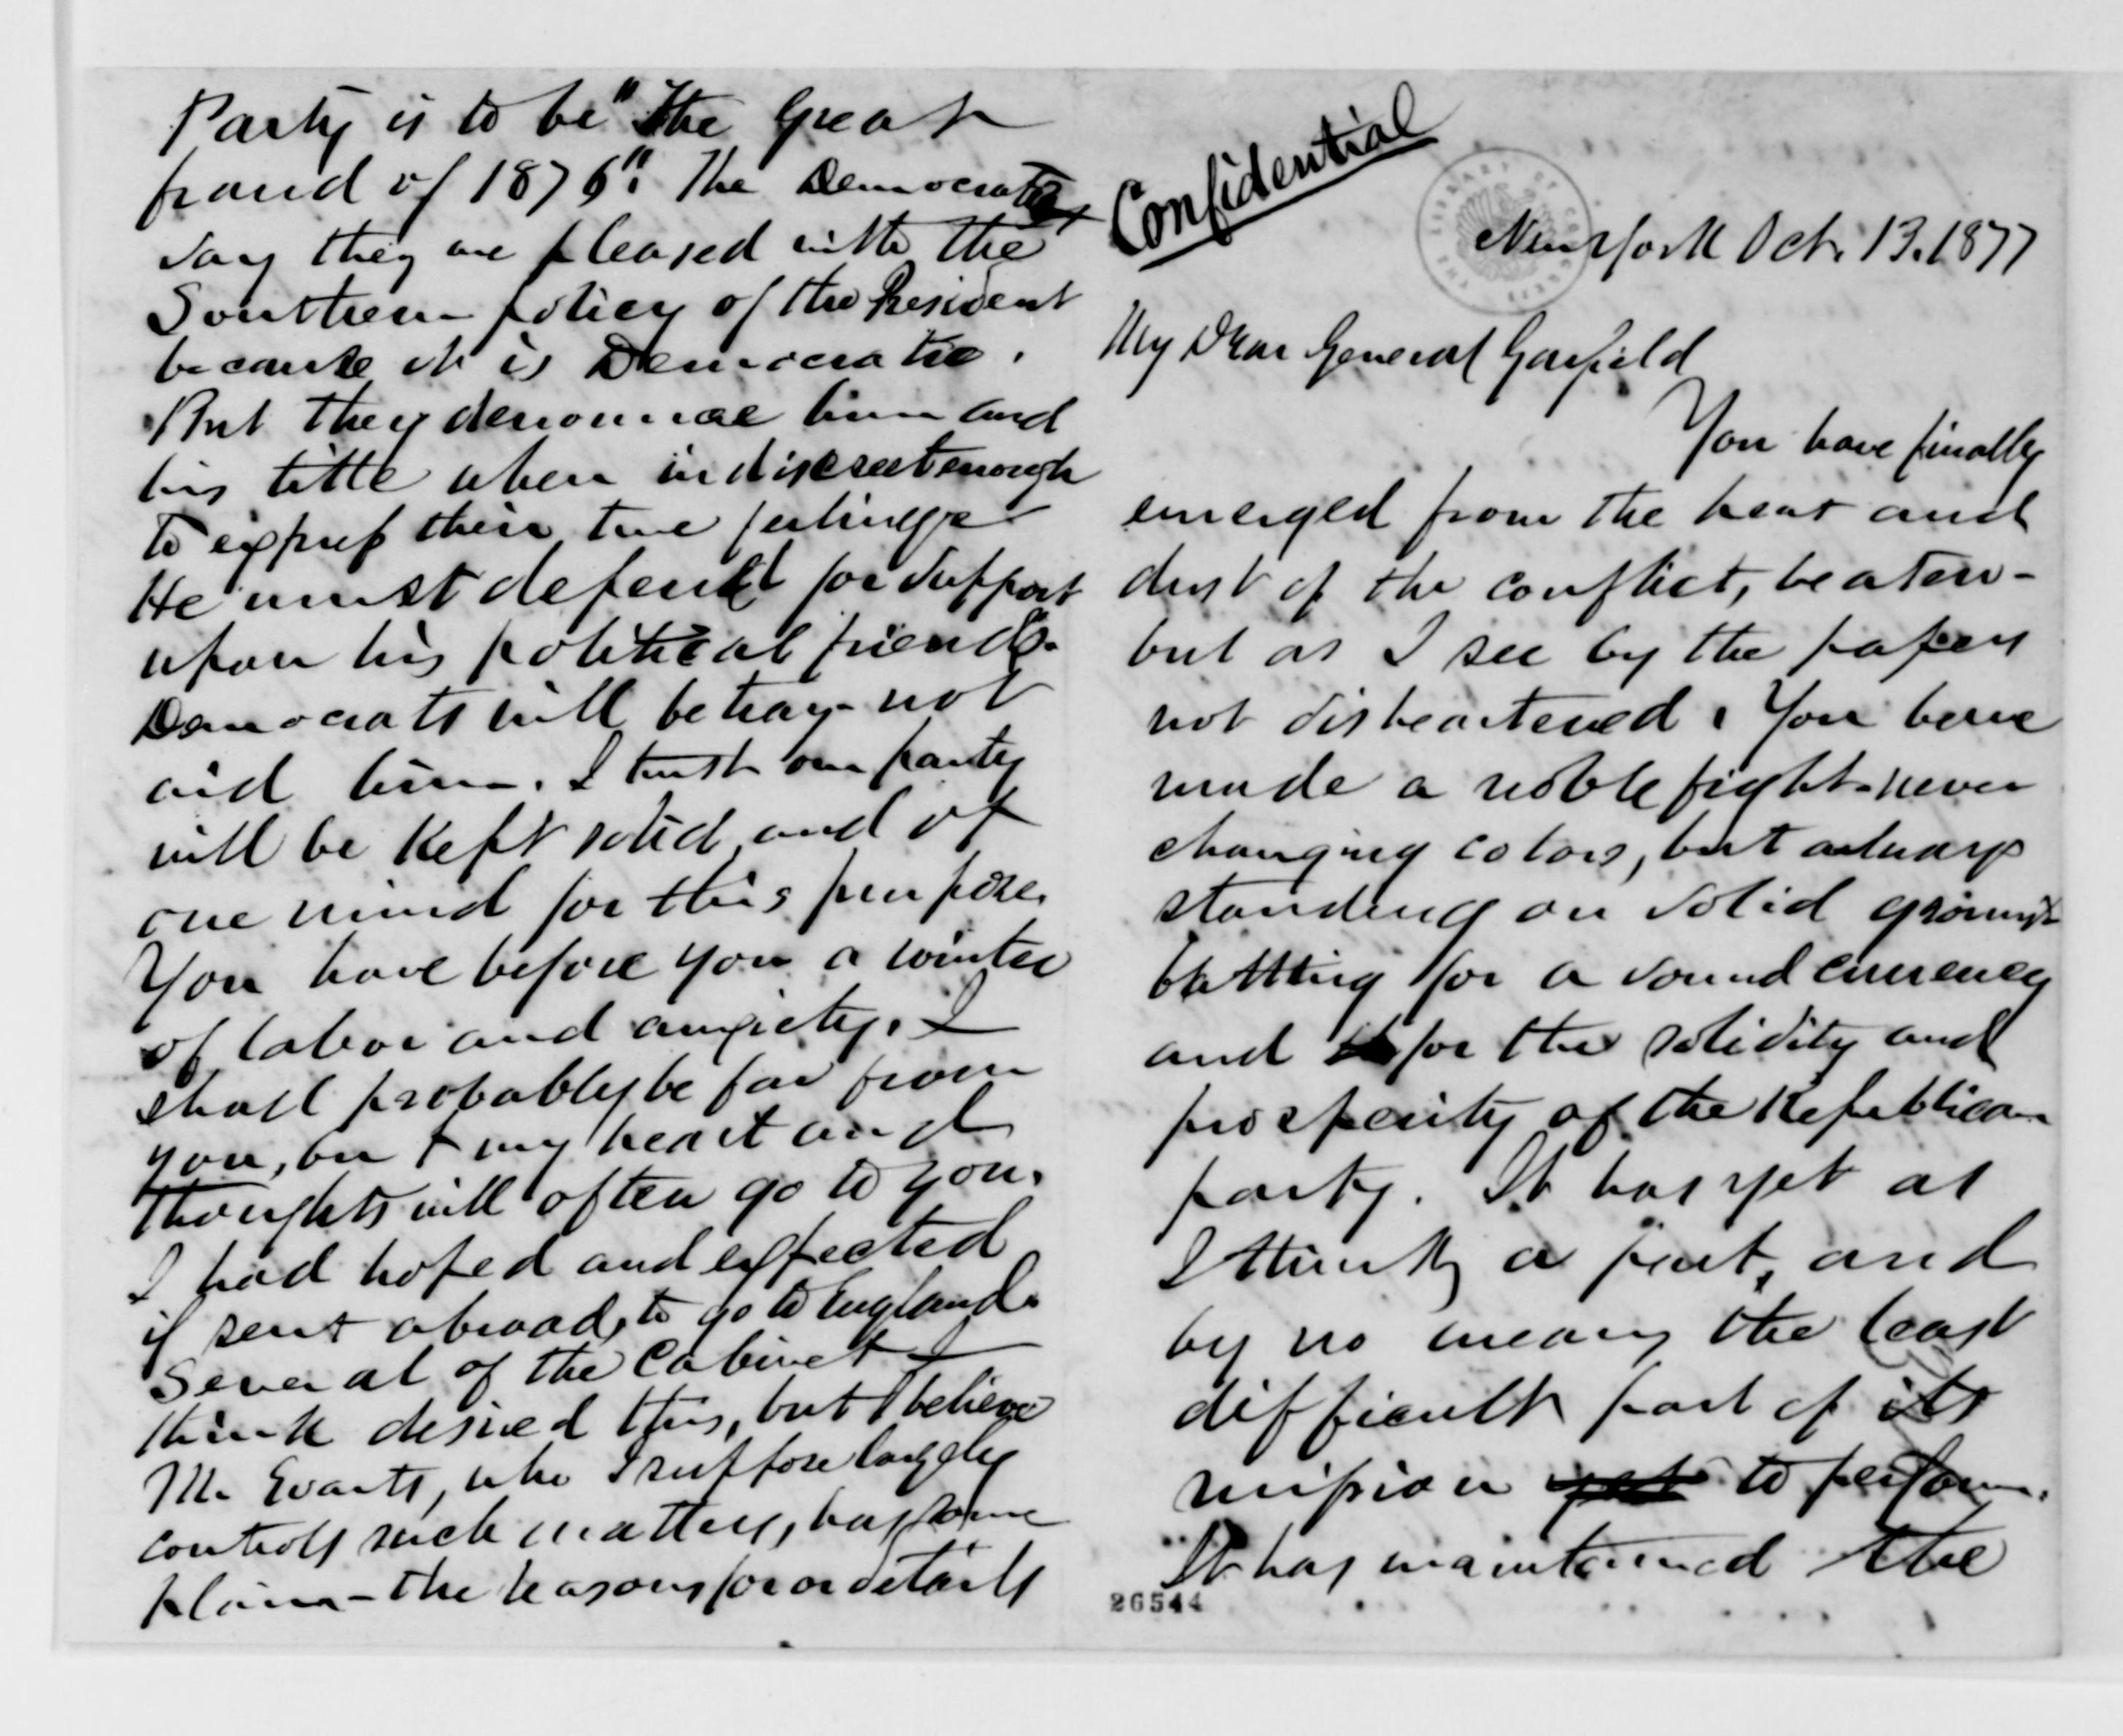 Confidential
New York Oct. 13. 1877
My Dear General Garfield
You have finally
emerged from the heat and
dust of the conflict, beaten -
but as I see by the papers
not disheartened. You have
made a noble fight - never
changing colors, but always
standing on solid ground
battling for a sound currency
and for the solidity and
prosperity of the Republican
party. It has yet as
I think a part, and
by no means the least
difficult part of its
mission yet to perform.
It has maintained the
26544
Party is to be "The Great
fraud of 1876". The Democrats
say they are pleased with the
Southern policy of the President
because it is Democratic.
But they denounce him and
his title when indiscreet enough
to express their true feelings.
He must depend for support
upon his political friends.
Democrats will betray - not
aid him. I trust our party
will be kept solid and of
one mind for this purpose.
You have before you a winter
of labor and anxiety. I
shall probably be far from
you, but my heart and
thoughts will often go to you.
I had hoped and expected
if sent abroad, to go to England.
Several of the Cabinet I
think desired this, but I believe
Mr. Evarts, who I suppose largely
controls such matters, has some
plan - the reasons for or details